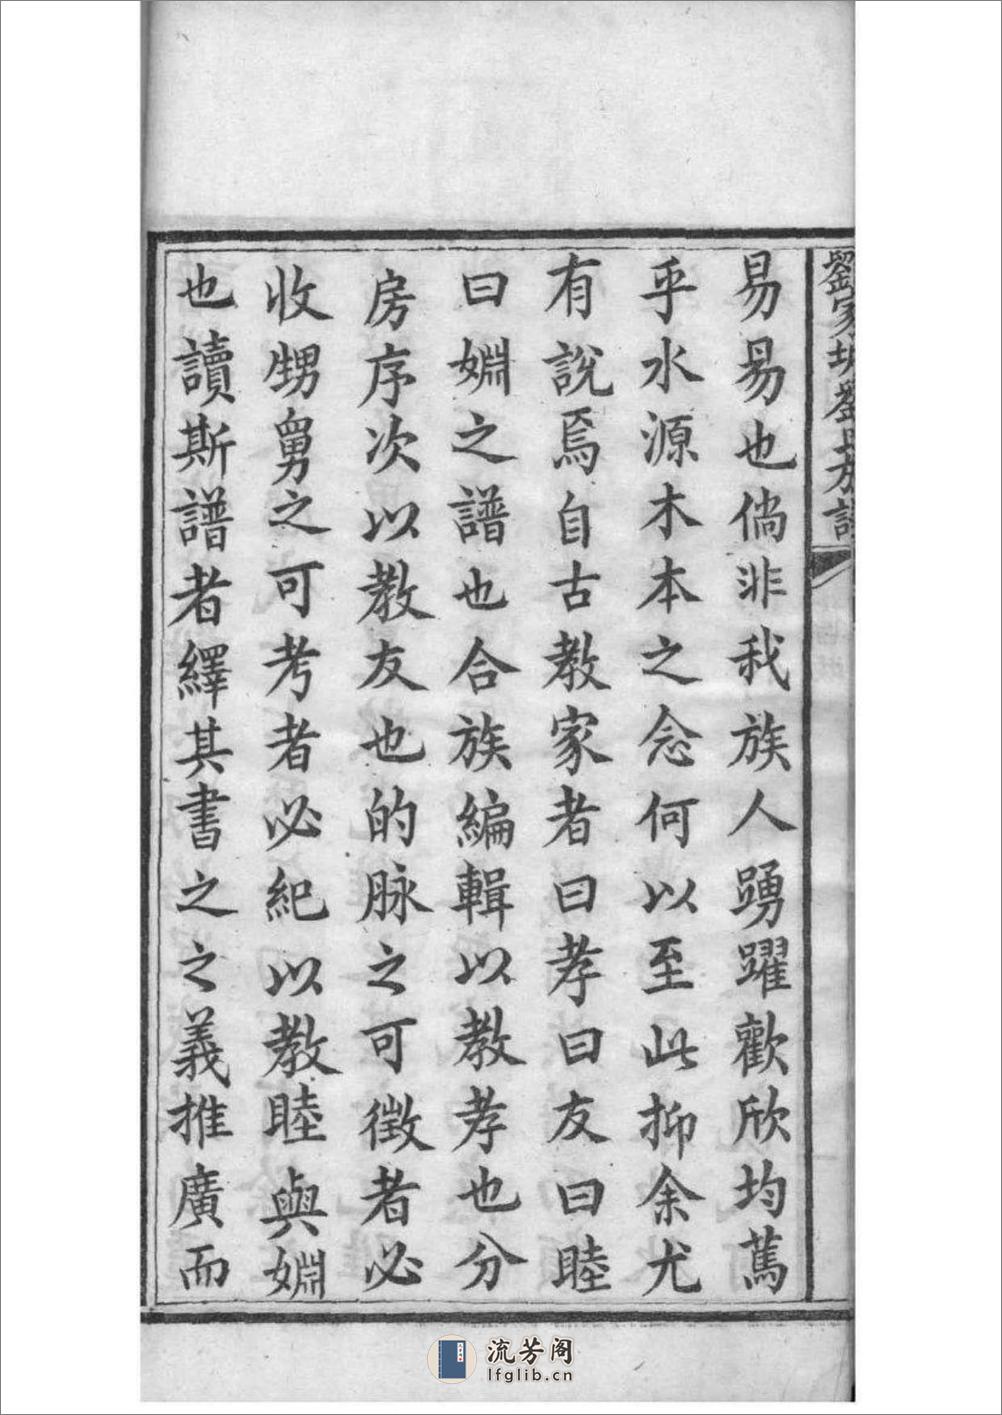 劉家坊劉氏族譜
易易也倘非我族人踴躍歡欣均蔿
乎水源木本之念何以至此抑余尤
有說焉自古教家者曰孝曰友曰睦
曰婣之譜也合族編輯以教孝也分
房序次以教友也的脉之可徴者必
收甥舅之可考者必紀以教睦與婣
也讀斯譜者繹其書之之義推廣而
流芳阁
lfglib.cn